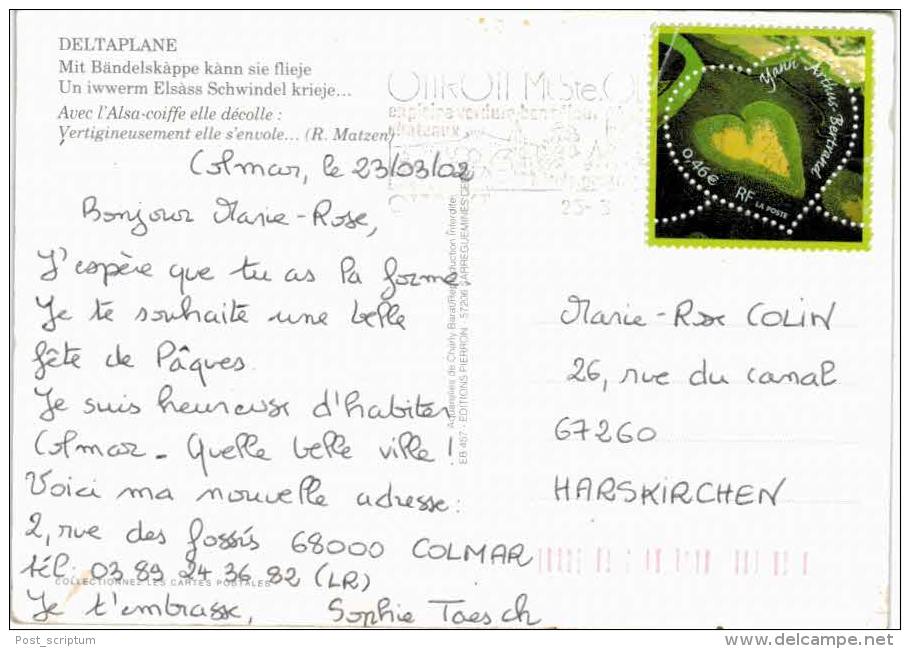 DELTAPLANE
Mit Bändelskàppe kànn sie flieje
Un iwwerm Elsàss Schwindel krieje...
Avec l'Alsa-coiffe elle décolle :
Vertigineusement elle s'envole... (R. Matzen)
Colmar, le 23/03/02
Bonjour Marie-Rose,
J'espère que tu as la forme.
Je te souhaite une belle
fête de Pâques.
Je suis heureuse d'habiter
Colmar - Quelle belle ville !
Voici ma nouvelle adresse :
2, rue des fossés 68000 COLMAR
tél: 03 89 24 36 82 (LR)
Je t'embrasse, Sophie Taesch
COLLECTIONNEZ LES CARTES POSTALES
Aquarelles de Charly Barat/Reproduction Interdite
EB 467 - EDITIONS PIERRON - 57206 SARREGUEMINES
Yann Arthus Bertrand
0,46€
RF LA POSTE
Marie-Rose COLIN
26, rue du canal
67260
HARSKIRCHEN
Post_scriptum
delcampe.net